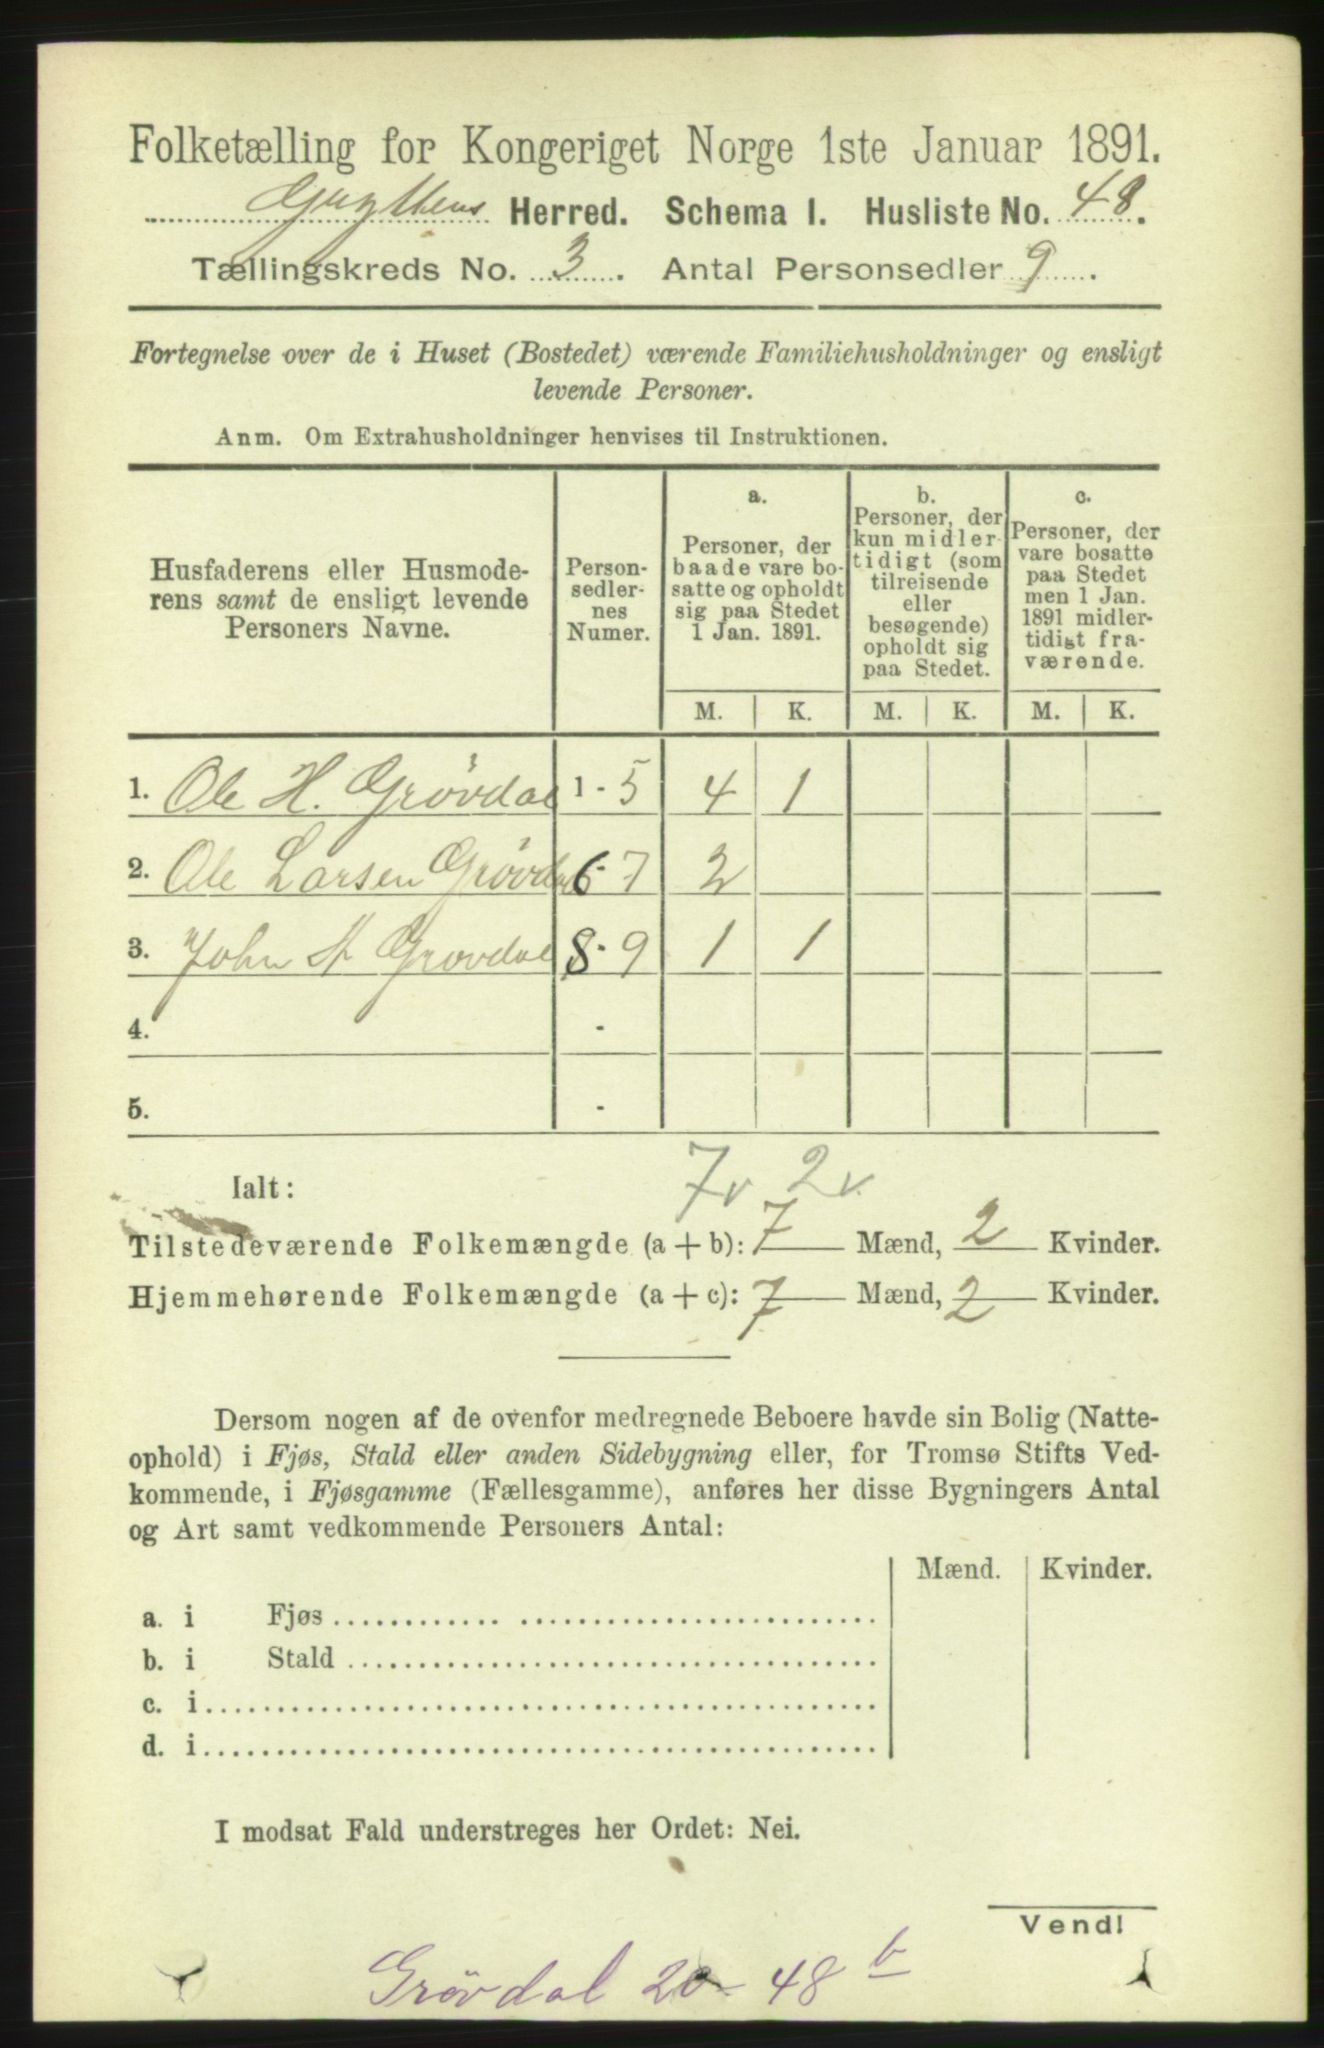 Folketælling for Kongeriget Norge 1ste Januar 1891.
Herred. Schema I. Husliste No. 48.
Tællingskreds No. 3. Antal Personsedler 9.
Fortegnelse over de i Huset (Bostedet) værende Familiehusholdninger og ensligt
levende Personer.
Anm. Om Extrahusholdninger henvises til Instruktionen.
Husfaderens eller Husmode-
rens samt de ensligt levende
Personers Navne.
Person-
sedler-
nes
Numer.
a.
Personer, der
baade vare bo-
satte og opholdt
sig paa Stedet
1 Jan. 1891.
b.
Personer, der
kun midler-
tidigt (som
tilreisende
eller
besøgende)
opholdt sig
paa Stedet.
c.
Personer, der
vare bosatte
paa Stedet
men 1 Jan.
1891 midler-
tidigt fra-
værende.
M. K. M. K. M. K.
1. Ole H. Grövdal 1 - 5 4 1
2. Ole Larsen Grövdal 6 - 7 2
3. John A Grovdal 8 - 9 1 1
4. -
5. -
Ialt: 7v 2v.
Tilstedeværende Folkemængde (a + b): 7 Mænd, 2 Kvinder.
Hjemmehørende Folkemængde (a + c): 7 Mænd, 2 Kvinder.
Dersom nogen af de ovenfor medregnede Beboere havde sin Bolig (Natte-
ophold) i Fjøs, Stald eller anden Sidebygning eller, for Tromsø Stifts Ved-
kommende, i Fjøsgamme (Fællesgamme), anføres her disse Bygningers Antal
og Art samt vedkommende Personers Antal:
Mænd. Kvinder.
a. i Fjøs
b. i Stald
c. i
d. i
I modsat Fald understreges her Ordet: Nei.
Vend!
Grövdal 20 - 48 b